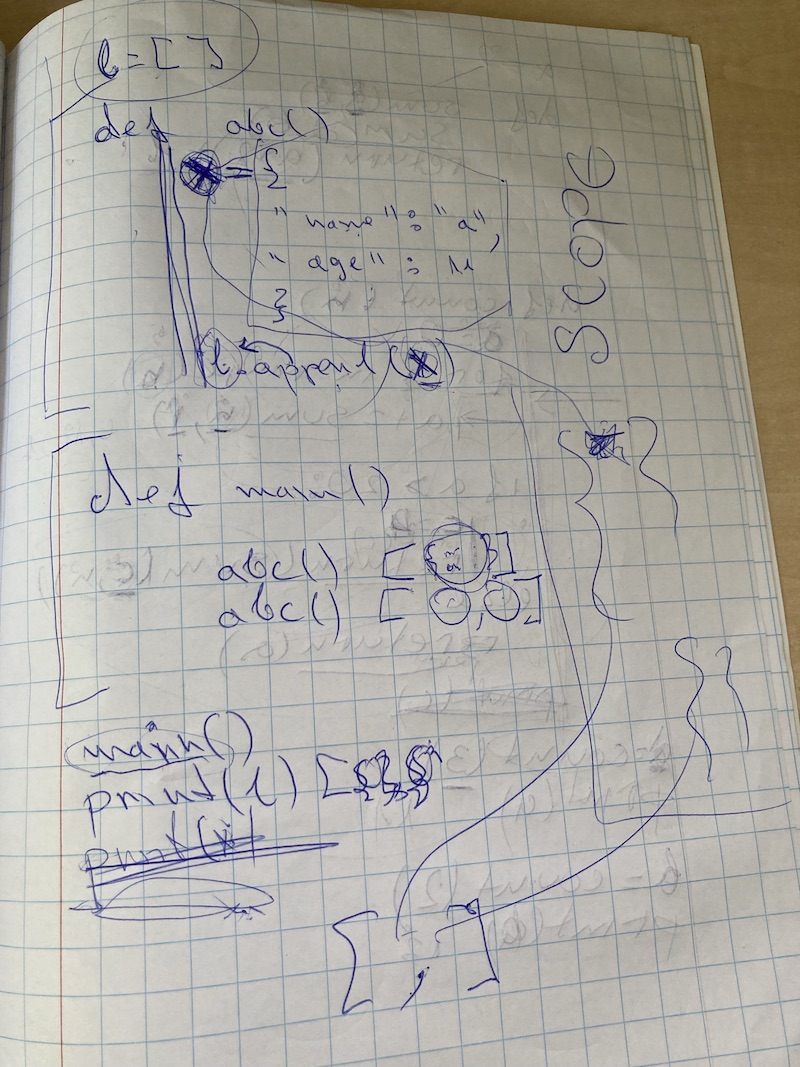 l = [ ]
def abc()
= {
"name" : "a",
"age" : 11
}
l.append(x)
SCOPE
def main()
abc() [ { } ]
abc() [ , ]
main()
print(l) [{},{}]
print(x)
{ }
{ }
[ , ]